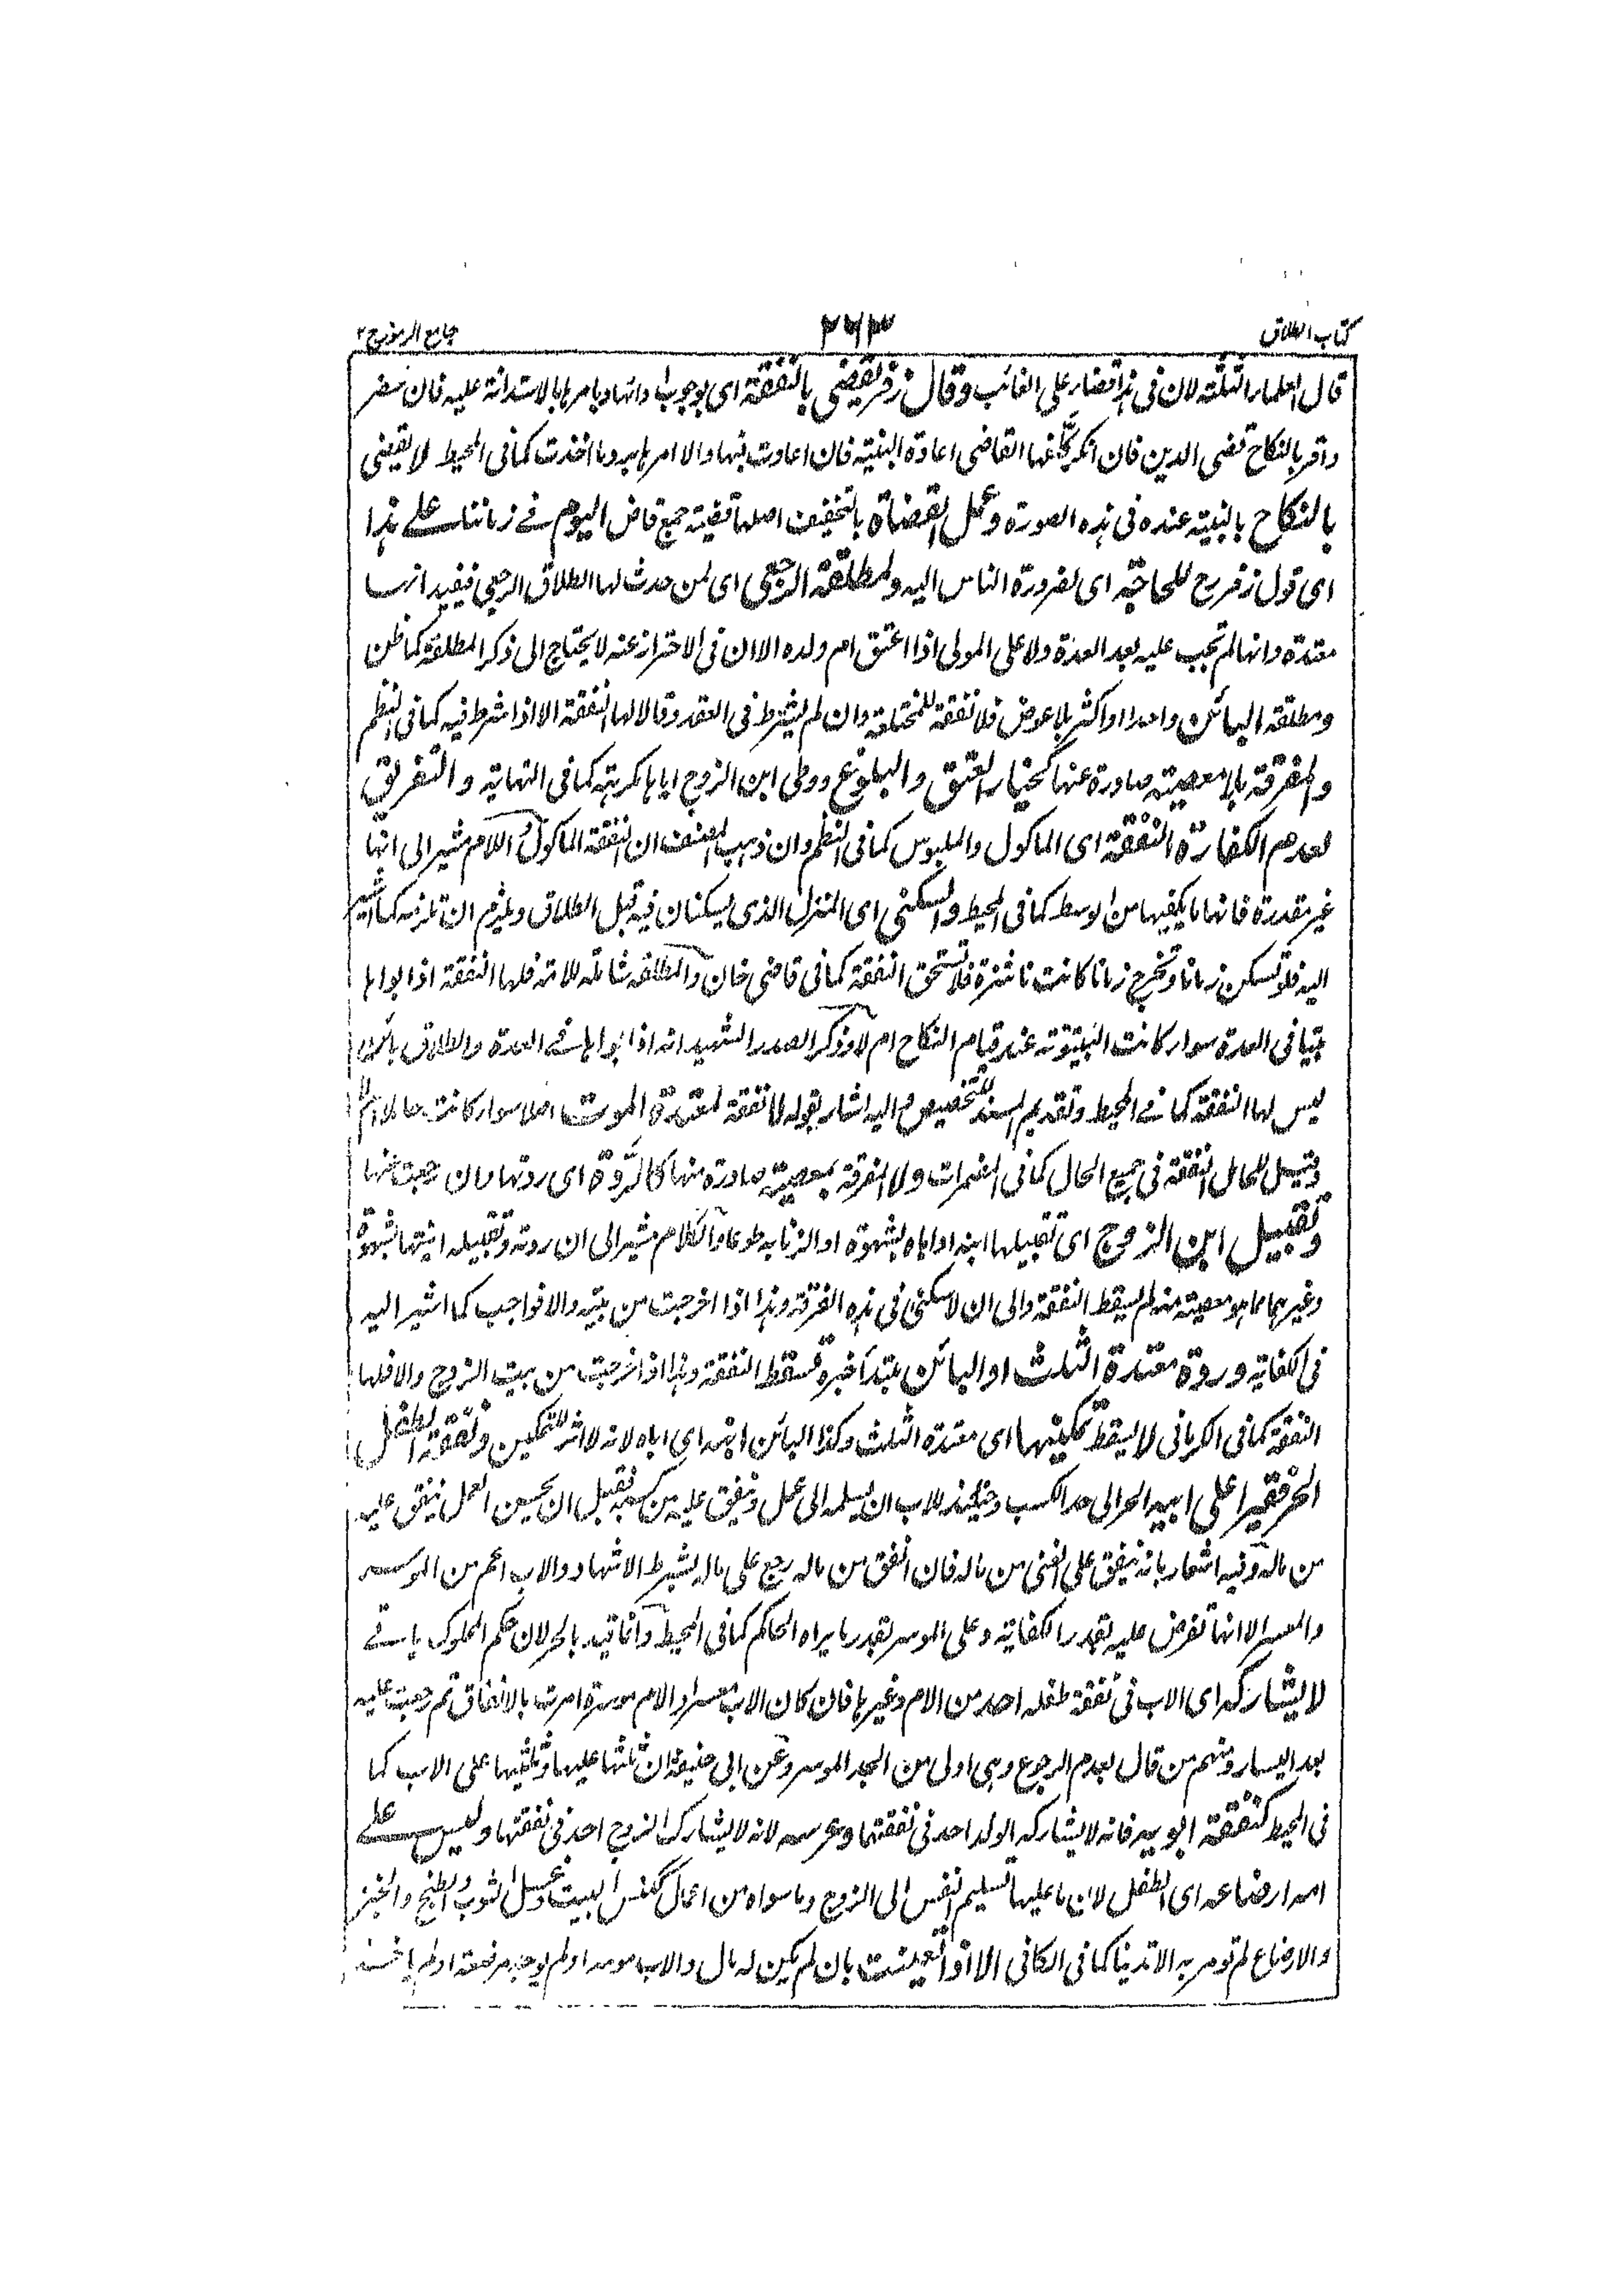 كتاب الطلاق ٢٦٣ جامع الرموز ج٢
قال العلماء الثلثة لان فى هذا قضاء على الغائب وقال زفر يقضى بالنفقة اى بوجوب ادائها ويامرها بالاستدانة عليه فان حضر
واقر بالنكاح قضى الدين فان انكر كلفها القاضى اعادة البينة فان اعادت فبها والا امرها برد ما اخذت كما فى المحيط لا يقضى
بالنكاح بالبينة عنده فى هذه الصورة وعمل القضاة بالتخفيف اصلها قضية جمع قاض اليوم فى زماننا على هذا
اى قول زفر رح للحاجة اى لضرورة الناس اليه ولمطلقة الرجعى اى لمن حدث لها الطلاق الرجعى فيفيد انها
معتدة وانها لم تجب عليه بعد العدة ولا على المولى اذا اعتق ام ولده الا ان فى الاحتراز عنه لا يحتاج الى ذكر المطلقة كما ظن
ومطلقة البائن واحدا او اكثر بلا عوض فلا نفقة للمختلعة وان لم يشترط فى العقد وقالا لها النفقة الا اذا شرط فيه كما فى النظم
والمفرقة بلا معصية صادرة عنها كخيار العتق والبلوغ ووطى ابن الزوج اياها مكرهة كما فى النهاية والتفريق
لعدم الكفاءة النفقة اى الماكول والملبوس كما فى النظم وان ذهب المصنف ان النفقة الماكول واللام مشير الى انها
غير مقدرة فانها ما يكفيها من الوسط كما فى المحيط والسكنى اى المنزل الذى يسكنان فيه قبل الطلاق ويلزم ان تلزمه كما اشير
اليه فلو تسكن زمانا وتخرج زمانا كانت ناشزة فلا تستحق النفقة كما فى قاضى خان والمطلقة شاملة للامة فلها النفقة اذا بوأها
بيتا فى العدة سواء كانت البينونة عند قيام النكاح ام لا وذكر الصدر الشهيد انه اذا بوأها فى العدة والطلاق بائن
ليس لها النفقة كما فى المحيط وتقديم المسند للتخصيص واليه اشار بقوله لا نفقة لمعتدة الموت اصلا سواء كانت حاملا ام لا
وقيل للحامل النفقة فى جميع الحال كما فى المضمرات ولا المفرقة بمعصية صادرة منها كالردة اى ردتها وان رجعت عنها
وتقبيل ابن الزوج اى تقبيلها ابنه او اباه بشهوة او الزنا به طوعا والكلام مشير الى ان ردته وتقبيله ابنتها بشهوة
وغيرهما مما هو معصية منه لم يسقط النفقة والى ان لا سكنى فى هذه الفرقة وهذا اذا اخرجت من بيته والا فواجب كما اشير اليه
فى الكفاية وردة معتدة الثلث او البائن مبتدأ خبره تسقط النفقة وهذا اذا خرجت من بيت الزوج والا فلها
النفقة كما فى الكرمانى لا يسقط تمكينها اى معتدة الثلث وكذا البائن ابنه اى اباه لانه لا اثر للتمكين ونفقة الطفل
الحر فقيرا على ابيه الحر الى حد الكسب وحينئذ للاب ان يسلمه الى عمل وينفق عليه من كسبه فقبل ان يحسن العمل ينفق عليه
من ماله وفيه اشعار بانه ينفق على الغنى من ماله فان انفق من ماله رجع على ماله بشرط الاشهاد والاب اعم من الموسر
والمعسر الا انها تفرض عليه بقدر الكفاية وعلى الموسر بقدر ما يراه الحاكم كما فى المحيط وانما قيد بالحر لان حكم المملوك ياتى
لا يشاركه اى الاب فى نفقة طفله احد من الام وغيرها فان كان الاب معسرا والام موسرة امرت بالانفاق ثم رجعت عليه
بعد اليسار ومنهم من قال بعدم الرجوع وهى اولى من الجد الموسر وعن ابى حنيفة ان ثلثها عليها وثلثيها على الاب كما
فى المحيط كنفقة ابويه فانه لا يشارك الولد احد فى نفقتهما وعرسه لانه لا يشارك الزوج احد فى نفقتها وليس على
امه ارضاعه اى الطفل لان ما عليها تسليم النفس الى الزوج وما سواه من اعمال ككنس البيت وغسل الثوب والطبخ والخبز
والارضاع لم تومر به الا تدينا كما فى الكافى الا اذا تعينت بان لم يكن له مال والاب معسر او لم يوجد مرضعة او لم ياخذ